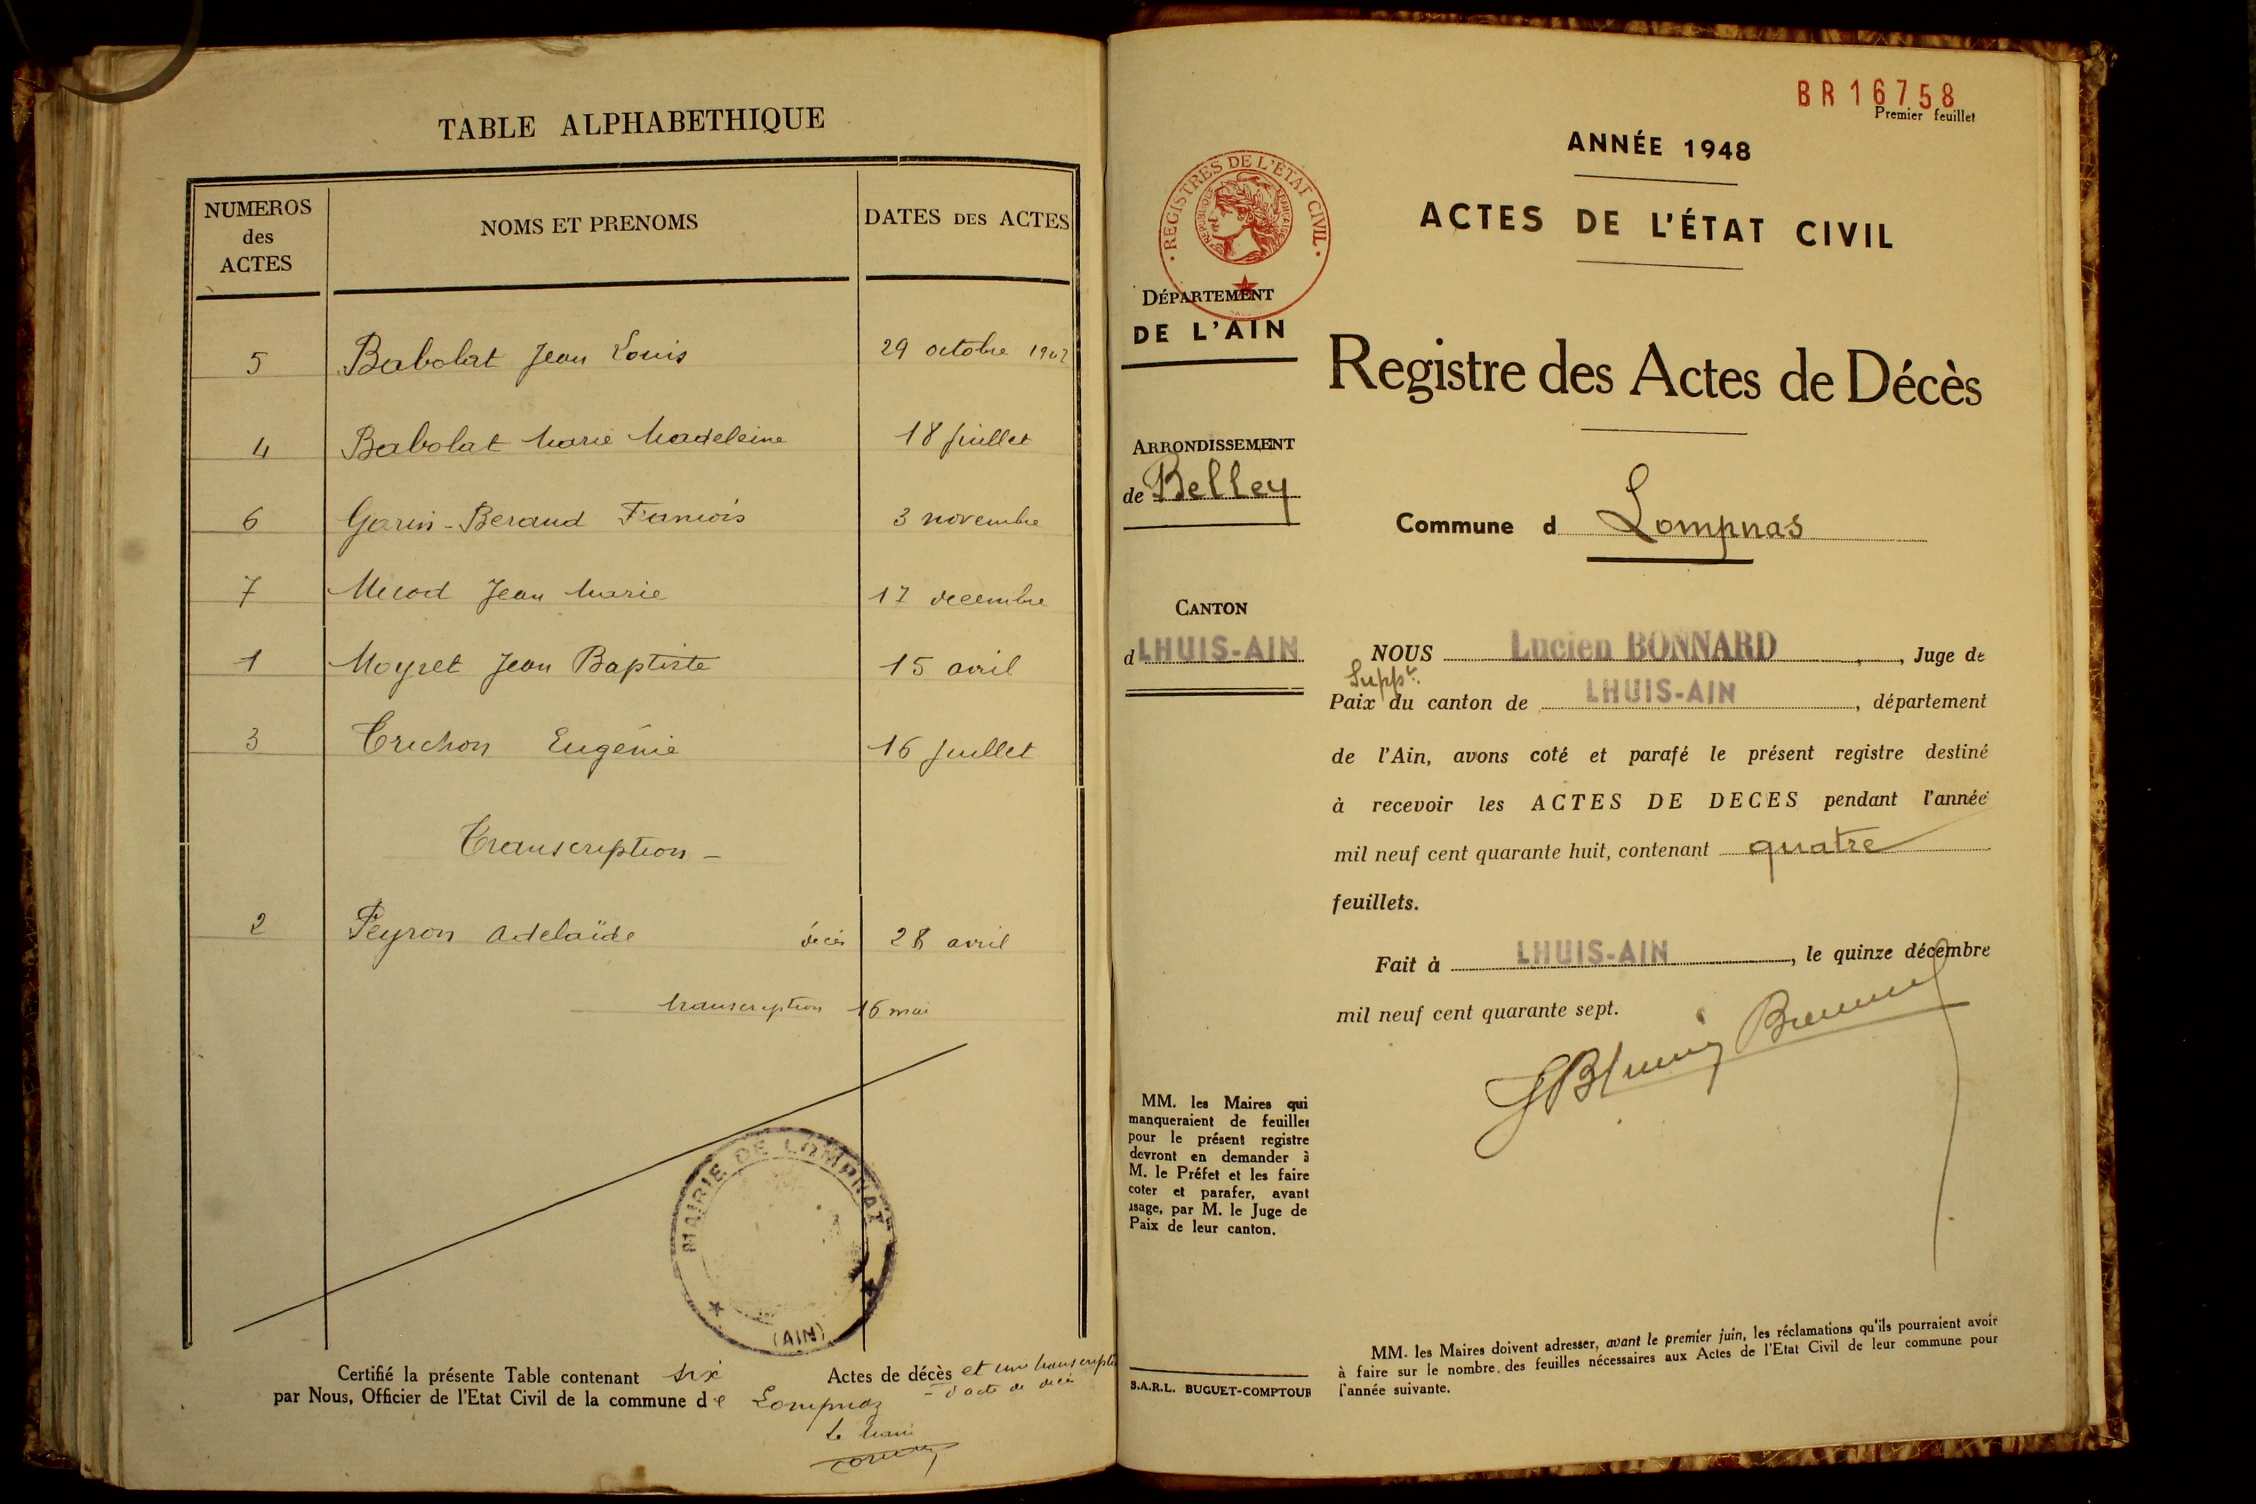 TABLE ALPHABETHIQUE
NUMEROS des ACTES
NOMS ET PRENOMS
DATES DES ACTES
5 Babolat Jean Louis 29 octobre
4 Babolat Marie Madeleine 18 juillet
6 Garin-Beraud François 3 novembre
7 Micod Jean Marie 17 decembre
1 Moyret Jean Baptiste 15 avril
3 Trichon Eugénie 16 juillet
Transcription -
2 Peyron Adelaïde décès 28 avril
transcription 16 mai
MAIRIE DE LOMPNAT
(AIN)
Certifié la présente Table contenant six Actes de décès et une transcription
- d'acte de décès
par Nous, Officier de l'Etat Civil de la commune de Lompnaz
Le Maire
BR16758
Premier feuillet
ANNÉE 1948
ACTES DE L'ÉTAT CIVIL
• REGISTRES DE L'ÉTAT CIVIL •
REPUBLIQUE FRANÇAISE
DÉPARTEMENT
DE L'AIN
Registre des Actes de Décès
ARRONDISSEMENT
de Belley
Commune d Lompnas
CANTON
d LHUIS-AIN
NOUS Lucien BONNARD, Juge de
Suppt.
Paix du canton de LHUIS-AIN, département
de l'Ain, avons coté et parafé le présent registre destiné
à recevoir les ACTES DE DECES pendant l'année
mil neuf cent quarante huit, contenant quatre
feuillets.
Fait à LHUIS-AIN, le quinze décembre
mil neuf cent quarante sept.
MM. les Maires qui
manqueraient de feuilles
pour le présent registre
devront en demander à
M. le Préfet et les faire
coter et parafer, avant
usage, par M. le Juge de
Paix de leur canton.
S.A.R.L. BUGUET-COMPTOUR
MM. les Maires doivent adresser, avant le premier juin, les réclamations qu'ils pourraient avoir
à faire sur le nombre des feuilles nécessaires aux Actes de l'Etat Civil de leur commune pour
l'année suivante.